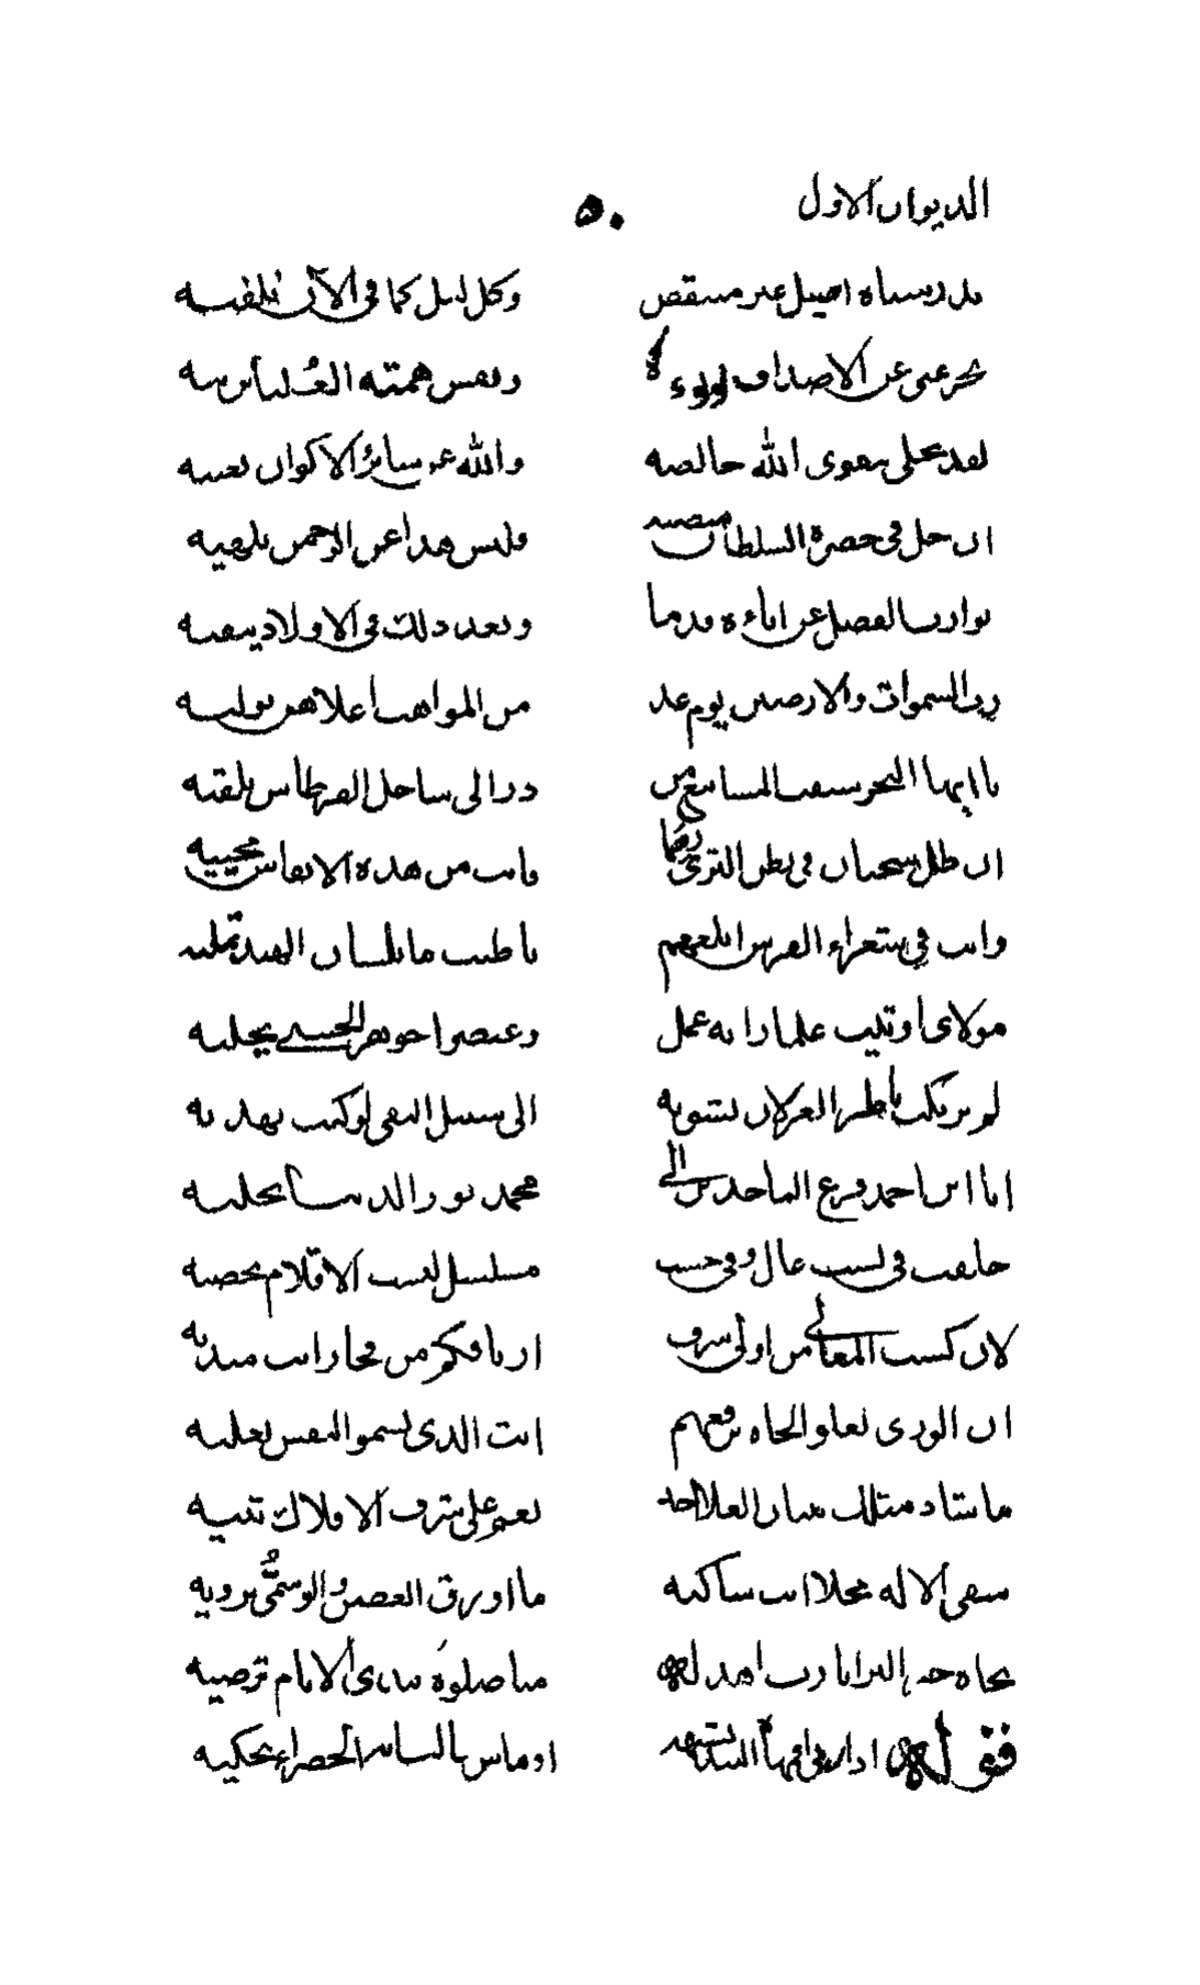 الديوان الاول ٥٠
بدر سناه اصيل غير منتقص وكل ليل كما في الآن تلفيه
بحر غنى عن الاصداف لؤلؤه ونفس همته العليا تربيه
لقد تحلى بتقوى الله خالصه والله عن سائر الاكوان يغنيه
ان حل في حضرة السلطان منصبه فليس هذا عن الرحمن يلهيه
توارث الفضل عن اباءه قدما وبعد ذلك في الاولاد يبقيه
رب السموات والارضين يوم غد من المواهب اعلاهن يوليه
يا ايها البحر سيف المسامع من درا الى ساحل القرطاس يلقيه
ان ظل سحبان في بطن الثرى رمما فانت من هذه الانفاس محييه
وانت في شعراء الفرس ابلغهم يا طيب ما بلسان الهند تمليه
مولاى اوتيت علما زانه عمل وعنصرا جوهر الحسنى يجليه
لم يرتكب ناظر الغزلان نشوته الى سبيل التقى لو كنت تهديه
انا ابن احمد فرع الماجدين الى محمد نور الدنيا تجليه
حلقت في نسب عال وفي حسب مسلسل ليست الاقلام تحصيه
لان كسب المعالى من اولى شرف ارثا فكم من فخار انت مبديه
ان الورى لعلو الجاه يرفعهم انت الذى لسمو النفس يعليه
ما شاد مثلك بنيان العلا احد نعم على شرف الافلاك تبنيه
سقى الاله محلا انت ساكنه ما اورق الغصن والوسمى يرويه
بجاه خير البرايا رب اهد له منا صلوة بنادى الانام ترضيه
فقوله اذا رنى فيها البيت تشبيه او ماس بالبانة الخضراء يحكيه